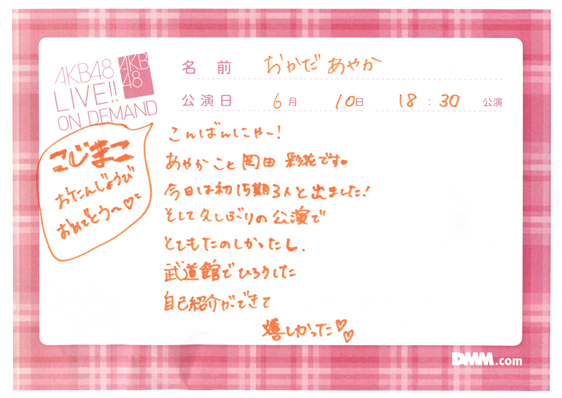 AKB48
LIVE!!
ON DEMAND
AKB
48
名 前 おかだ あやか
公演日 6月 10日 18:30 公演
こじまこ
おたんじょうび
おめでとう〜♡
こんばんにゃー!
あやかこと岡田 彩花です。
今日は初15期3人と出ました!
そして久しぶりの公演で
とてもたのしかったし、
武道館でひろうした
自己紹介ができて
嬉しかった♡♡
DMM.com